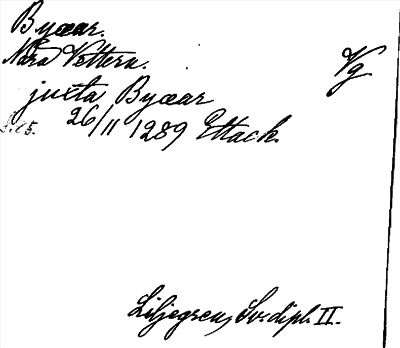 Byxar.
Nära Vettern.
Vg
juxta Byxar
s. 65. 26/11 1289 Ettack.
Liljegren, Sv. dipl. II.